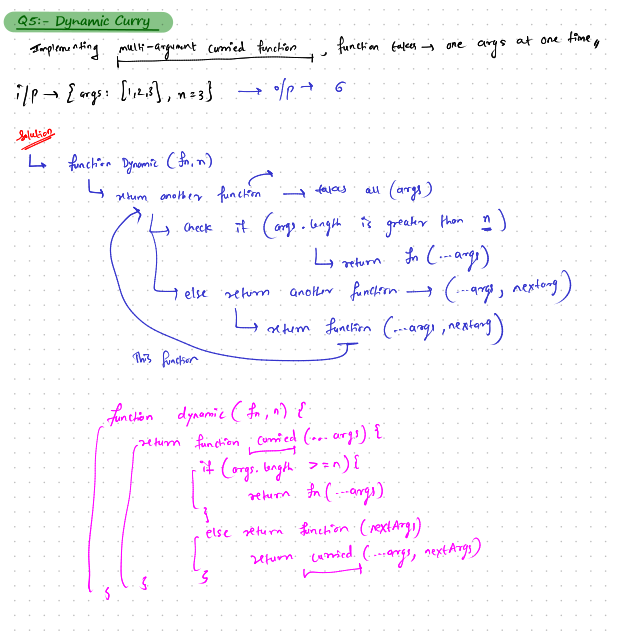 Q5:- Dynamic Curry
Implementing multi-argument curried function, function takes → one args at one time,,
i/p → { args: [1,2,3], n=3} → o/p → 6
Solution
↳ function Dynamic (fn, n)
↳ return another function → takes all (args)
↳ check if (args.length is greater than n)
↳ return fn (...args)
↳ else return another function → (...args, nextarg)
↳ return function (...args, nextarg)
This function
function dynamic (fn, n) {
return function curried (... args) {
if (args.length >= n) {
return fn (...args)
}
else return function (nextArgs)
return curried (...args, nextArgs)
}
}
}